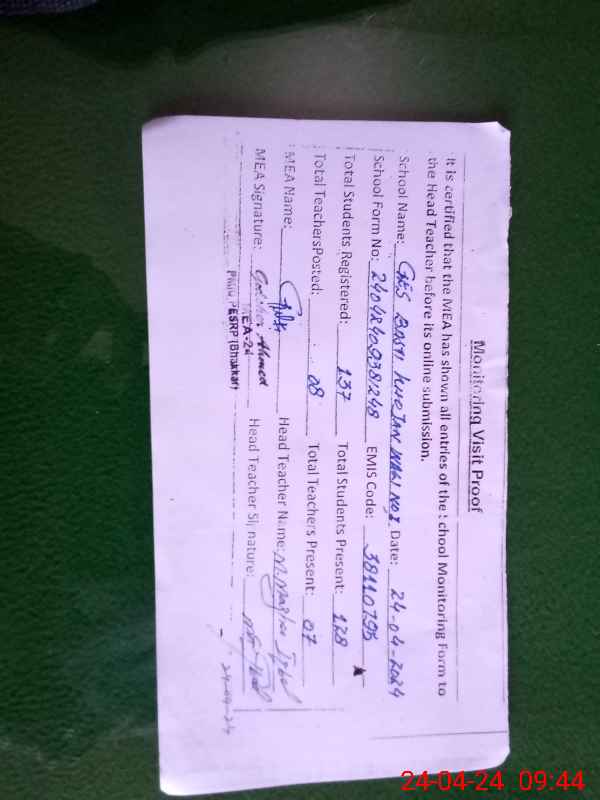 Monitoring Visit Proof
It is certified that the MEA has shown all entries of the School Monitoring Form to
the Head Teacher before its online submission.
School Name: GES BASTI KHETAN WALI NO.1 Date: 24-04-2024
School Form No: 24048409381248 EMIS Code: 38110795
Total Students Registered: 137 Total Students Present: 128
Total TeachersPosted: 08 Total Teachers Present: 07
MEA Name: Head Teacher Name: M. Mazhar Iqbal
MEA Signature: Ahmed Head Teacher Signature:
MEA-24
PMIU PESRP (Bhakkar)
24-04-24
24-04-24 09:44